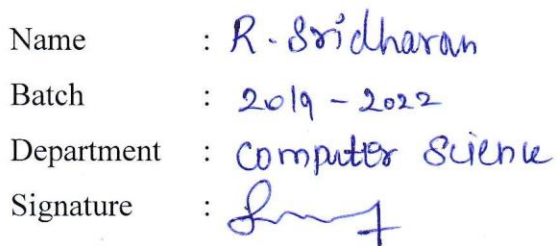 Name : R. Sridharan
Batch : 2019 - 2022
Department : Computer Science
Signature :